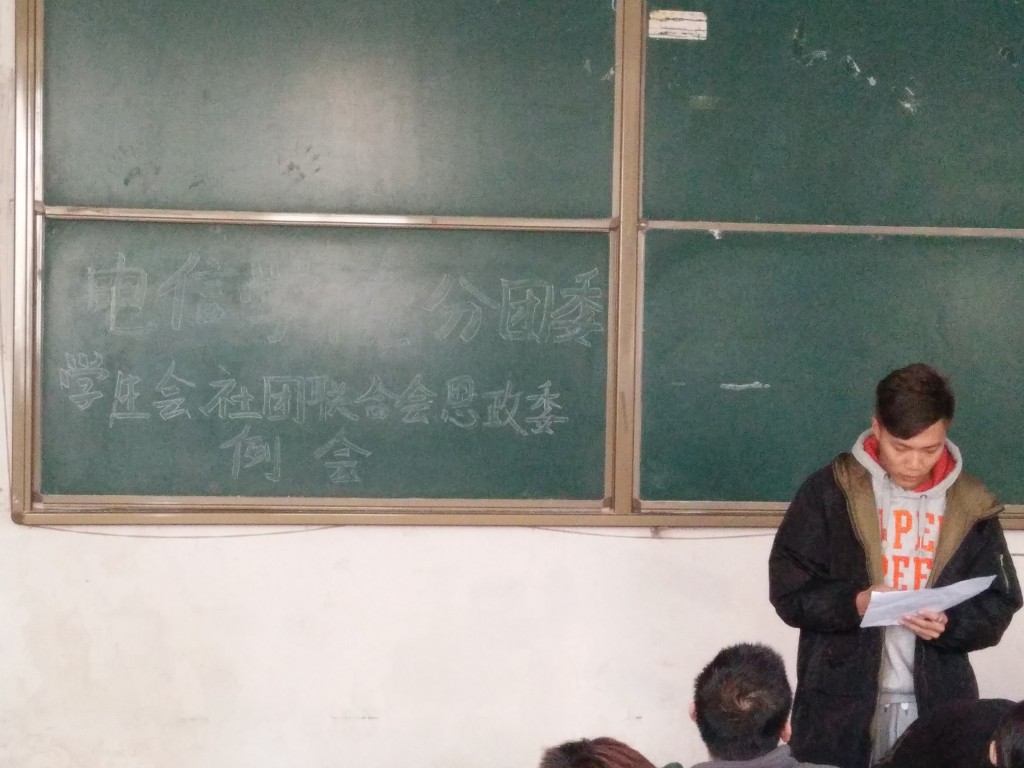 电信学院分团委
学生会社团联合会思政委
例会
APE
REE